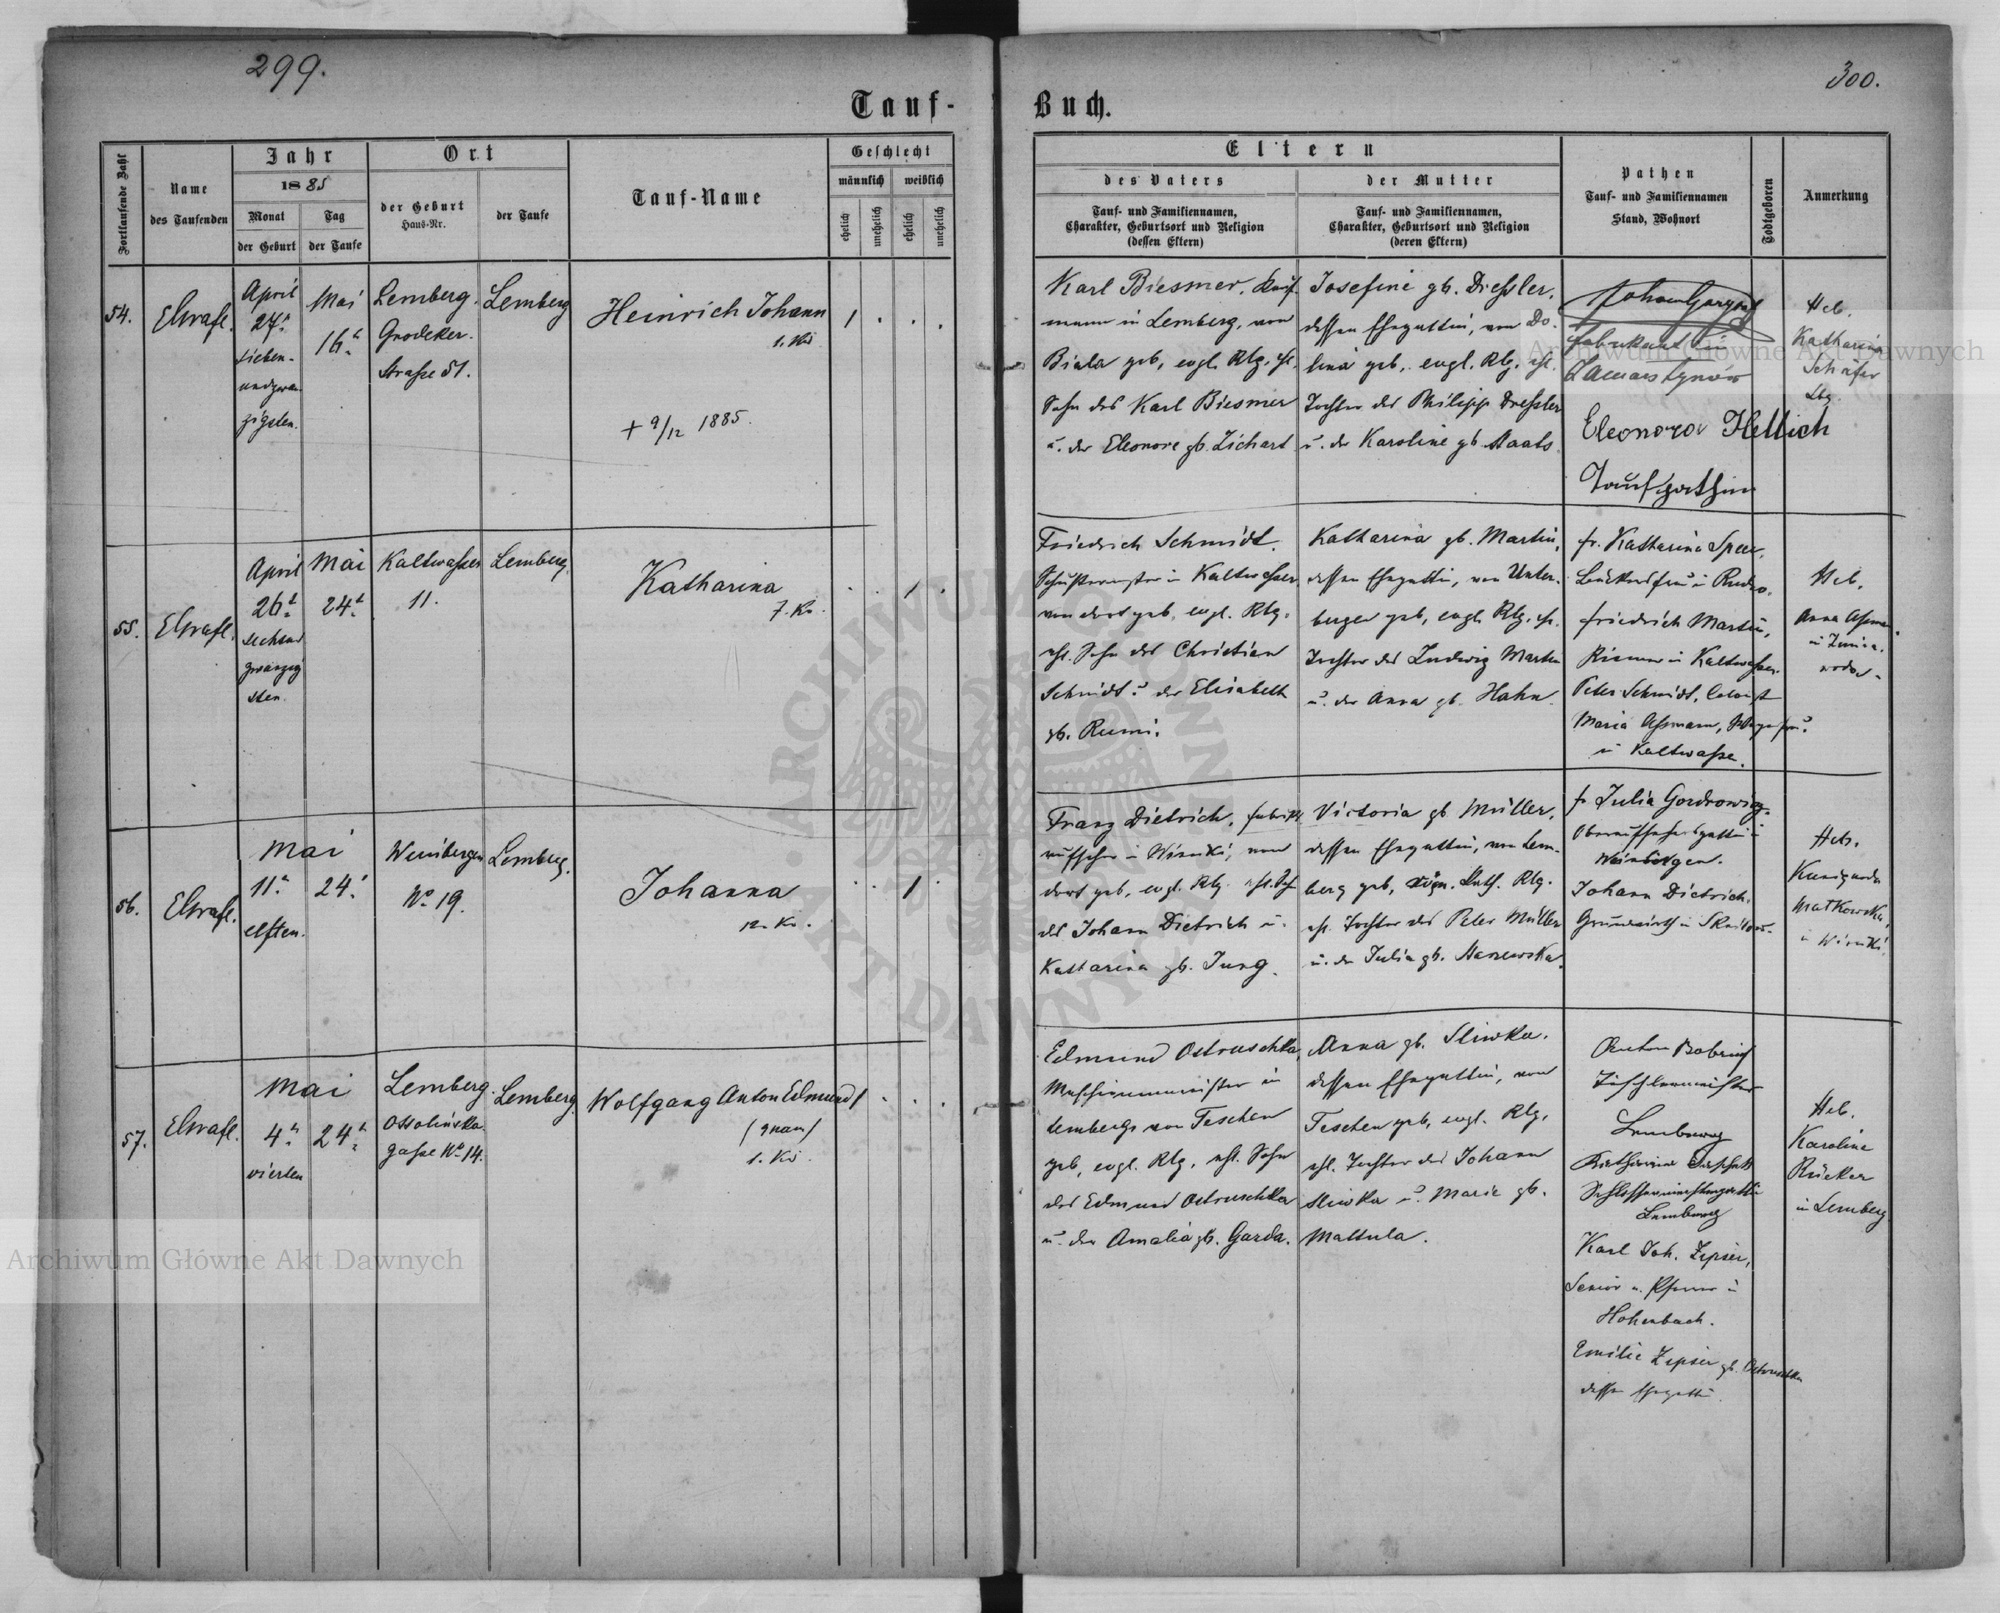 299.
300.
Tauf-
Buch.
Fortlaufende Zahl
Name
des Taufenden
Jahr
1885
Monat
der Geburt
Tag
der Taufe
Ort
der Geburt
Haus-Nr.
der Taufe
Tauf-Name
Geschlecht
männlich
weiblich
ehelich
unehelich
ehelich
unehelich
Eltern
des Vaters
Tauf- und Familiennamen,
Charakter, Geburtsort und Religion
(dessen Eltern)
der Mutter
Tauf- und Familiennamen,
Charakter, Geburtsort und Religion
(deren Eltern)
Pathen
Tauf- und Familiennamen
Stand, Wohnort
Todtgeboren
Anmerkung
54.
April
27.
sieben-
undzwan
zigsten.
Mai
16.
Lemberg.
Grodeker.
Straße 51.
Lemberg
Heinrich Johann
+ 9/12 1885.
1
Karl Biesmer, Kauf-
mann in Lemberg, von
Biala geb, evgl. Rlg. ehl.
Sohn des Karl Biesmer
u. der Eleonore gb. Zichart
Josefine gb. Dreßler,
dessen Ehegattin, von Do-
lina geb, evgl. Rlg. ehl.
Tochter des Philipp Dreßler
u. der Karoline gb. Staats
Fabrikant in
Zamarstynów
Eleonora Hellich
Taufpathin
Heb.
Katharina
Schäfer
Lbg.
55.
April
26.
sechsund
zwanzig
sten.
Mai
24.
Kaltwasser
11.
Lemberg.
Katharina
1
Friedrich Schmidt.
Schustermeister in Kaltwasser
von dort geb, evgl. Rlg.
ehl. Sohn des Christian
Schmidt u. der Elisabeth
gb. Rumi.
Katharina gb. Martin,
dessen Ehegattin, von Unter-
bergen geb, evgl. Rlg. ehl.
Tochter des Ludwig Martin
u. der Anna gb. Hahn.
fr. Katharina Speer,
Friedrich Martin,
Riemer in Kaltwasser
Peter Schmidt, Colonist
Maria Aßmann,
in Kaltwasser.
Heb.
Anna Aßman
in Zimna
woda.
56.
Mai
11.
elften.
24.
Weinbergen
No 19.
Lemberg.
Johanna
1
Franz Dietrich, Fabriks
aufseher in Winniki, von
dort geb, evgl. Rlg. ehl. Sohn
des Johann Dietrich u.
Katharina gb. Jung.
Victoria gb Müller,
dessen Ehegattin, von Lem-
berg geb, röm. kath. Rlg.
ehl. Tochter des Peter Müller
fr Julia
Oberaufsehersgattin in
Weinbergen.
Johann Dietrich,
Grundwirth in
Heb.
Kunigunda
Matkowska,
in Winniki
57.
Mai
4.
vierten
24.
Lemberg.
Ossolinska
gasse No 14.
Lemberg.
Wolfgang Anton Edmund
1
Edmund Ostruschka,
Maschinenmeister in
Lemberg von Teschen
geb, evgl. Rlg, ehl. Sohn
des Edmund Ostruschka
u. der Amalia gb. Garda.
Anna gb. Sliwka.
dessen Ehegattin, von
Teschen geb, evgl. Rlg.
ehl. Tochter des Johann
Sliwka u. Marie gb.
Mattula.
Tischlermeister
Lemberg
Schlossermeistersgattin
Lemberg
Karl Joh. Zipser,
Senior u. Pfarrer in
Hohenbach.
Emilie Zipser gb. Ostruschka
dessen Ehegattin
Heb.
Karoline
Rücker
in Lemberg
Archiwum Główne Akt Dawnych
Archiwum Główne Akt Dawnych